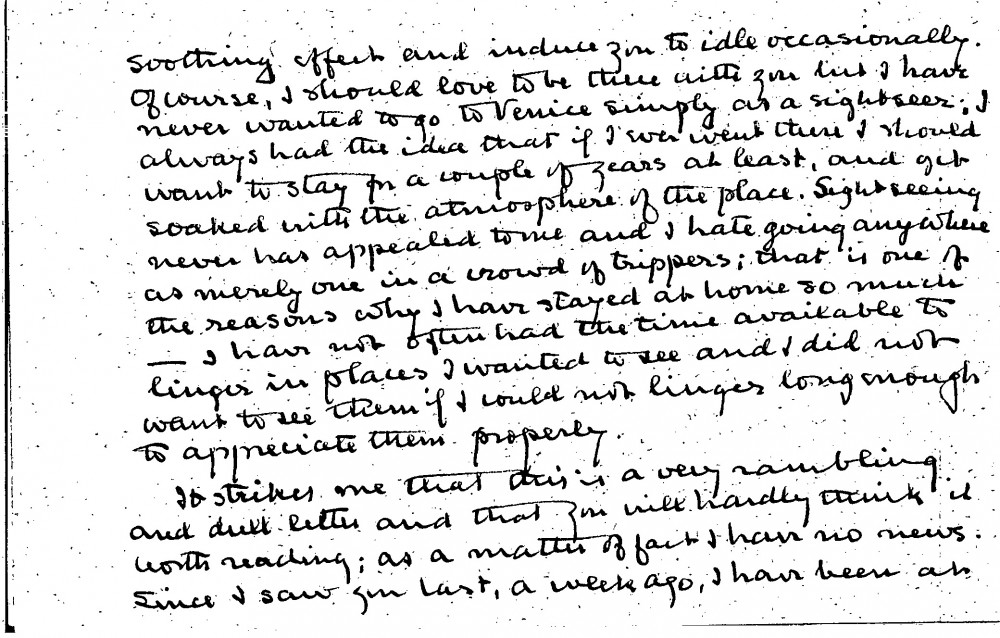 soothing effect and induce you to idle occasionally.
Of course, I should love to be there with you but I have
never wanted to go to Venice simply as a sightseer; I
always had the idea that if I ever went there I should
want to stay for a couple of years at least, and get
soaked with the atmosphere of the place. Sightseeing
never has appealed to me and I hate going anywhere
as merely one in a crowd of trippers; that is one of
the reasons why I have stayed at home so much
— I have not often had the time available to
linger in places I wanted to see and I did not
want to see them if I could not linger long enough
to appreciate them properly.
It strikes me that this is a very rambling
and dull letter and that you will hardly think it
worth reading; as a matter of fact I have no news.
Since I saw you last, a week ago, I have been at